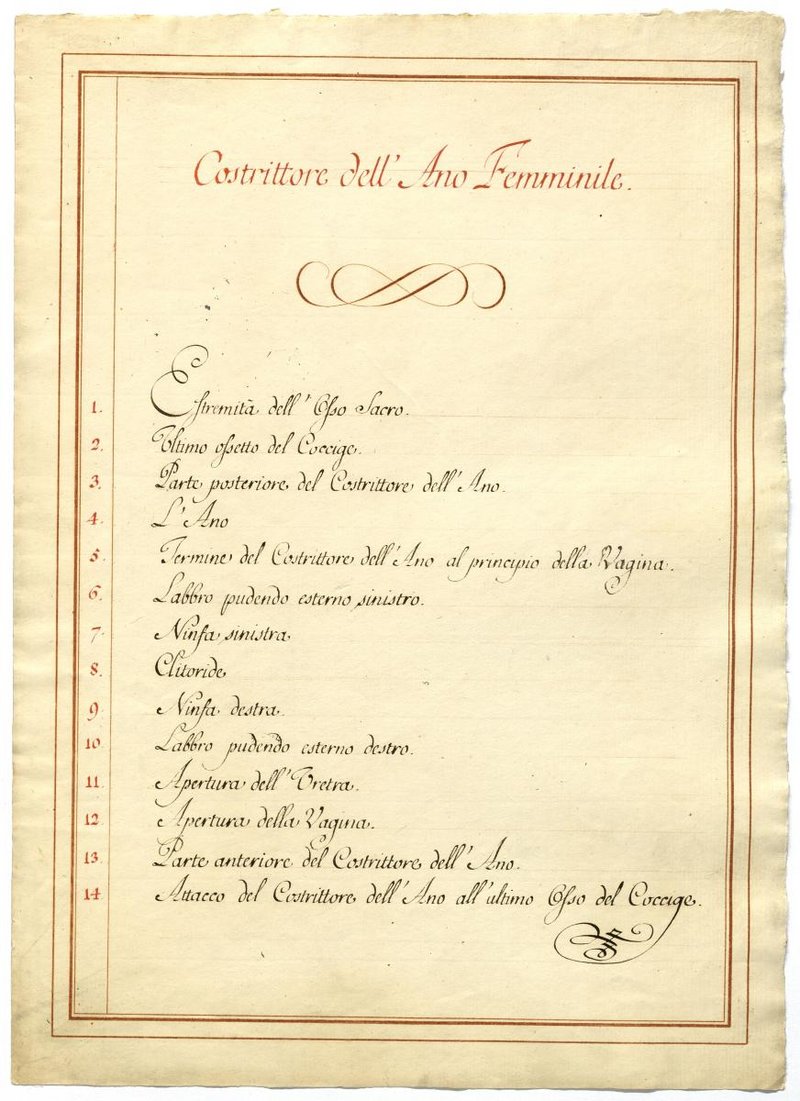 Costrittore dell' Ano Femminile.
1. Estremità dell' Osso Sacro.
2. Ultimo ossetto del Coccige.
3. Parte posteriore del Costrittore dell' Ano.
4. L' Ano
5. Termine del Costrittore dell' Ano al principio della Vagina.
6. Labbro pudendo esterno sinistro.
7. Ninfa sinistra
8. Clitoride
9. Ninfa destra.
10. Labbro pudendo esterno destro.
11. Apertura dell' Uretra.
12. Apertura della Vagina.
13. Parte anteriore del Costrittore dell' Ano.
14. Attacco del Costrittore dell' Ano all' ultimo Osso del Coccige.